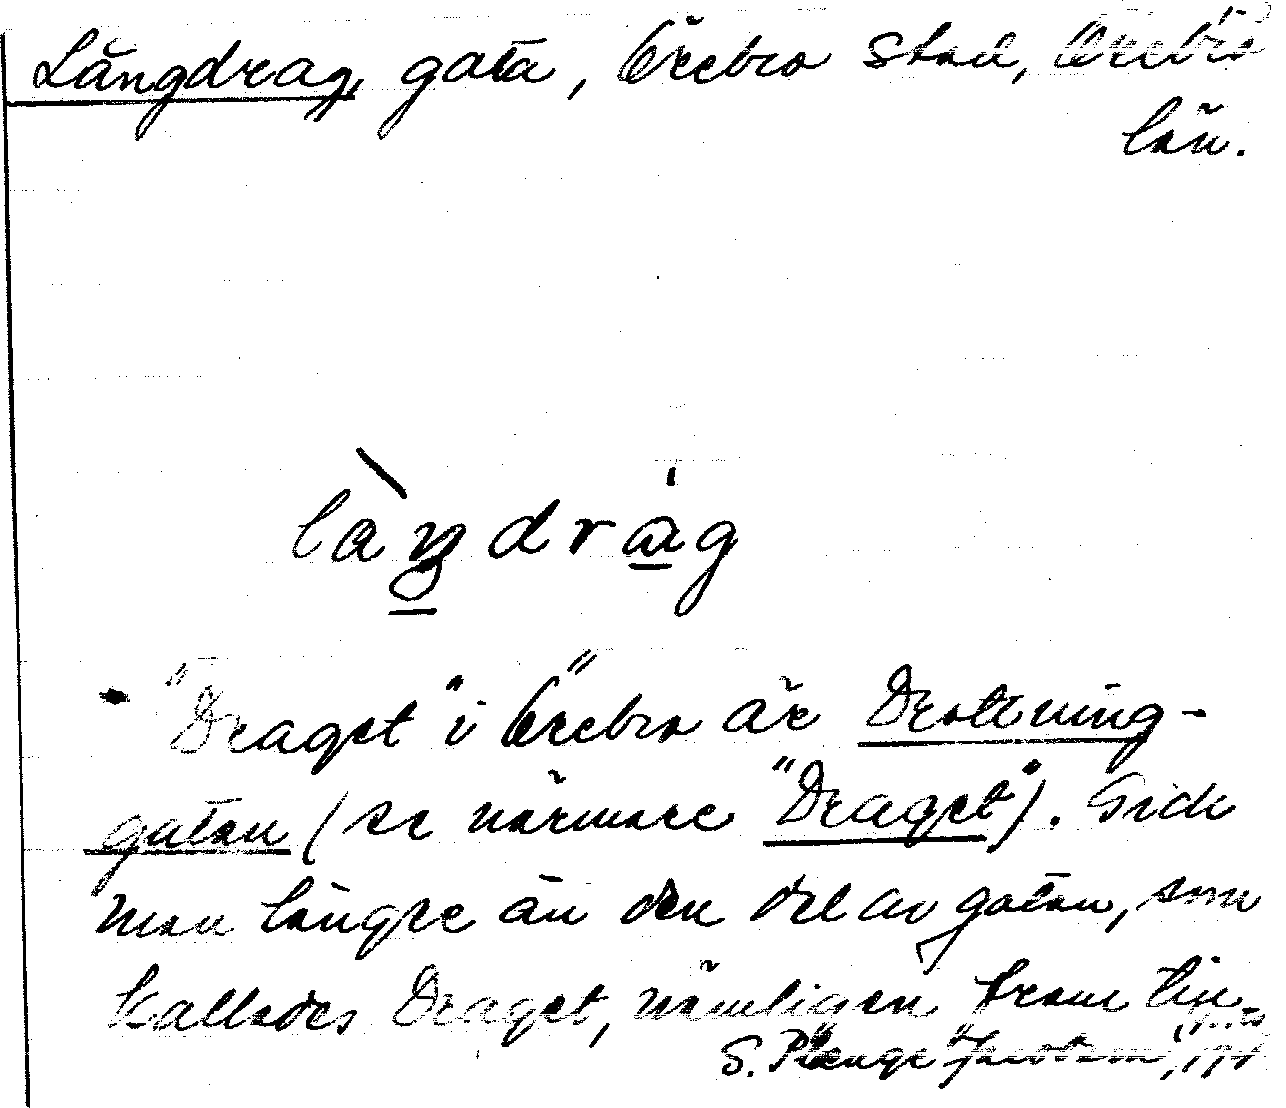 Långdrag, gata, Örebro stad, Örebro
län.
làŋdrág
"Draget" i Örebro är Drottning-
gatan (se närmare "Draget"). Gick
man längre än den del av gatan, som
kallades Draget, nämligen fram
S.